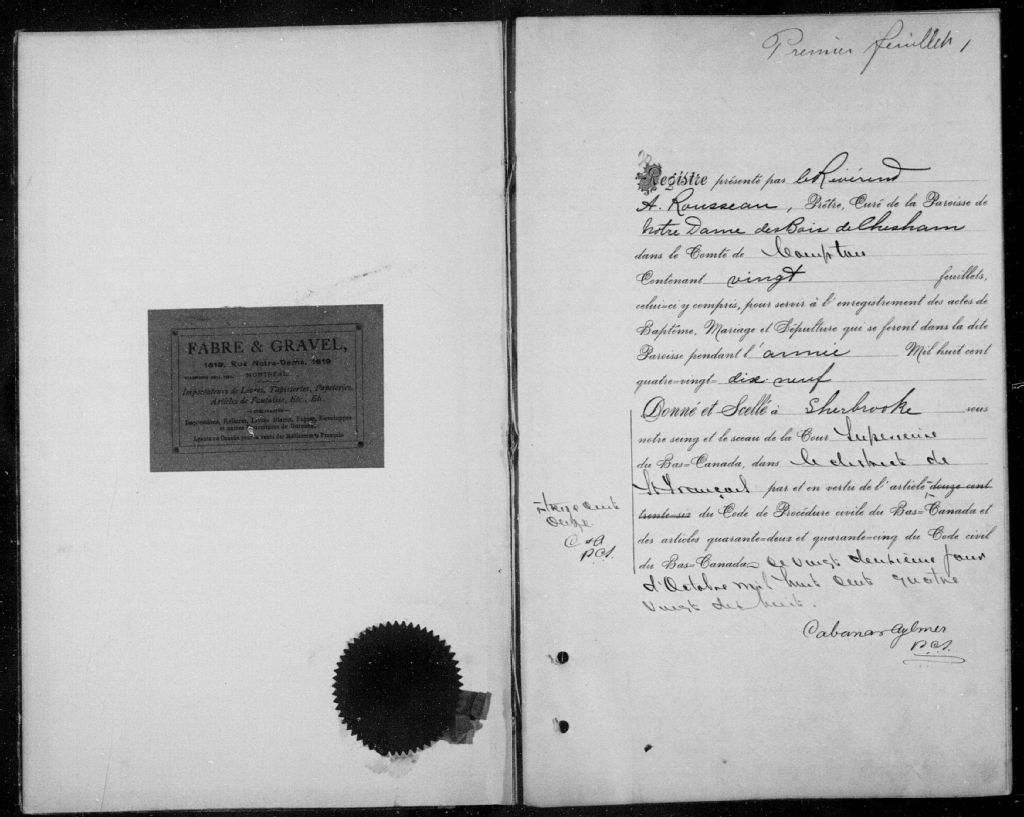 Premier feuillet
FABRE & GRAVEL,
1619, Rue Notre-Dame, 1619
MONTRÉAL.
Importateurs de Livres, Tapisseries, Papeteries,
Articles de Fantaisie, Etc., Etc.
Impressions, Reliures, Livres Blancs, Papier, Enveloppes
et autres Fournitures de Bureau.
Agents au Canada pour la vente des Publications Français
20
Registre présenté par le Révérend
A. Rousseau, Prêtre, Curé de la Paroisse de
Notre Dame des Bois de Chesham
dans le Comté de Compton
Contenant vingt feuillets,
celui-ci y compris, pour servir à l'enregistrement des actes de
Baptême, Mariage et Sépulture qui se feront dans la dite
Paroisse pendant l'année Mil huit cent
quatre-vingt- dix neuf
Donné et Scellé à Sherbrooke sous
notre seing et le sceau de la Cour Supérieure
du Bas-Canada, dans le district de
St François par et en vertu de l'article douze cent
trente-six du Code de Procédure civile du Bas-Canada et
des articles quarante-deux et quarante-cinq du Code civil
du Bas-Canada, ce vingt deuxième jour
d'Octobre mil huit cent quatre
vingt dix huit.
treize cent
onze
C & A
P.C.S.
Cabana & Aylmer
P.C.S.